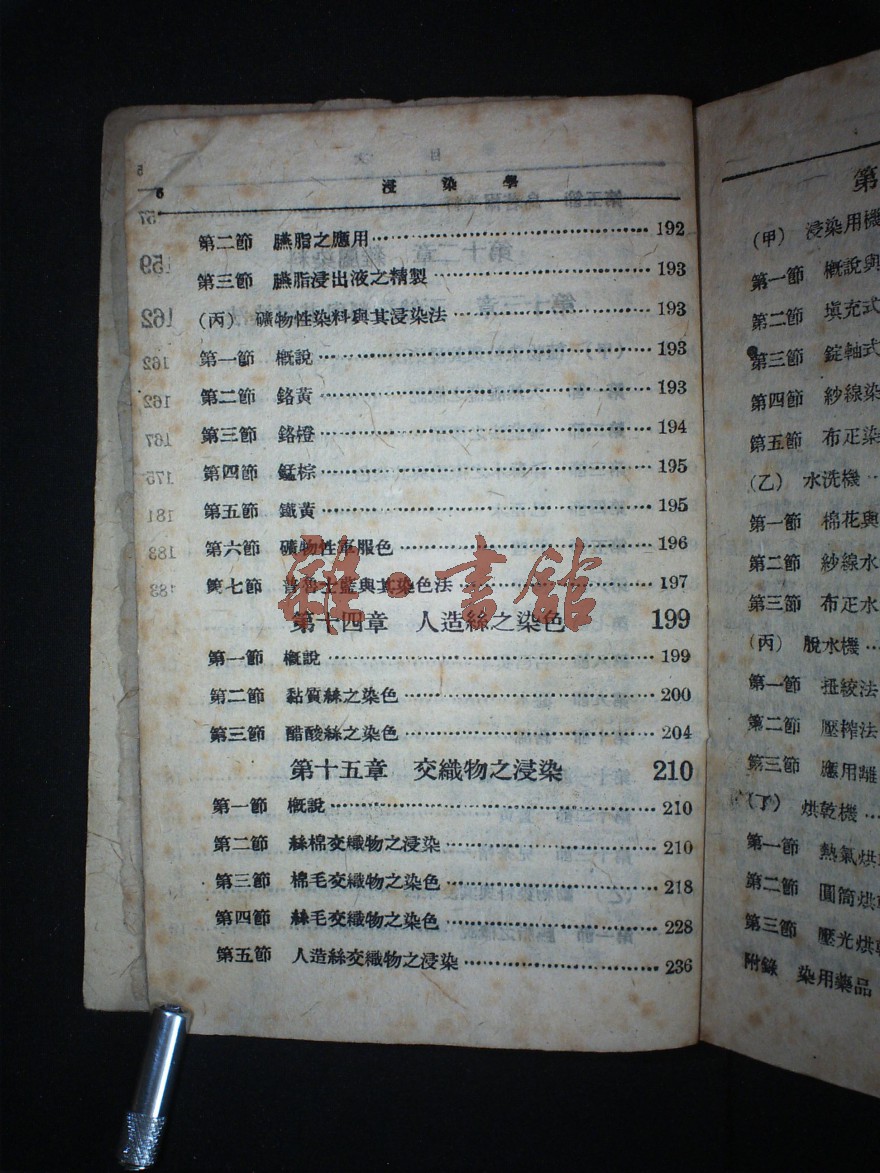 6
浸染學
第二節 臙脂之應用 192
第三節 臙脂浸出液之精製 193
(丙) 礦物性染料與其浸染法 193
第一節 概說 193
第二節 鉻黃 193
第三節 鉻橙 194
第四節 錳棕 195
第五節 鐵黃 195
第六節 礦物性軍服色 196
第七節 普魯士藍與其染色法 197
第十四章 人造絲之染色 199
第一節 概說 199
第二節 黏質絲之染色 200
第三節 醋酸絲之染色 204
第十五章 交織物之浸染 210
第一節 概說 210
第二節 絲棉交織物之浸染 210
第三節 棉毛交織物之染色 218
第四節 絲毛交織物之染色 228
第五節 人造絲交織物之浸染 236
雜·書館
第
(甲) 浸染用機
第一節 概說與
第二節 填充式
第三節 錠軸式
第四節 紗線染
第五節 布疋染
(乙) 水洗機
第一節 棉花與
第二節 紗線水
第三節 布疋水
(丙) 脫水機
第一節 扭絞法
第二節 壓榨法
第三節 應用離
(丁) 烘乾機
第一節 熱氣烘
第二節 圓筒烘乾
第三節 壓光烘乾
附錄 染用藥品